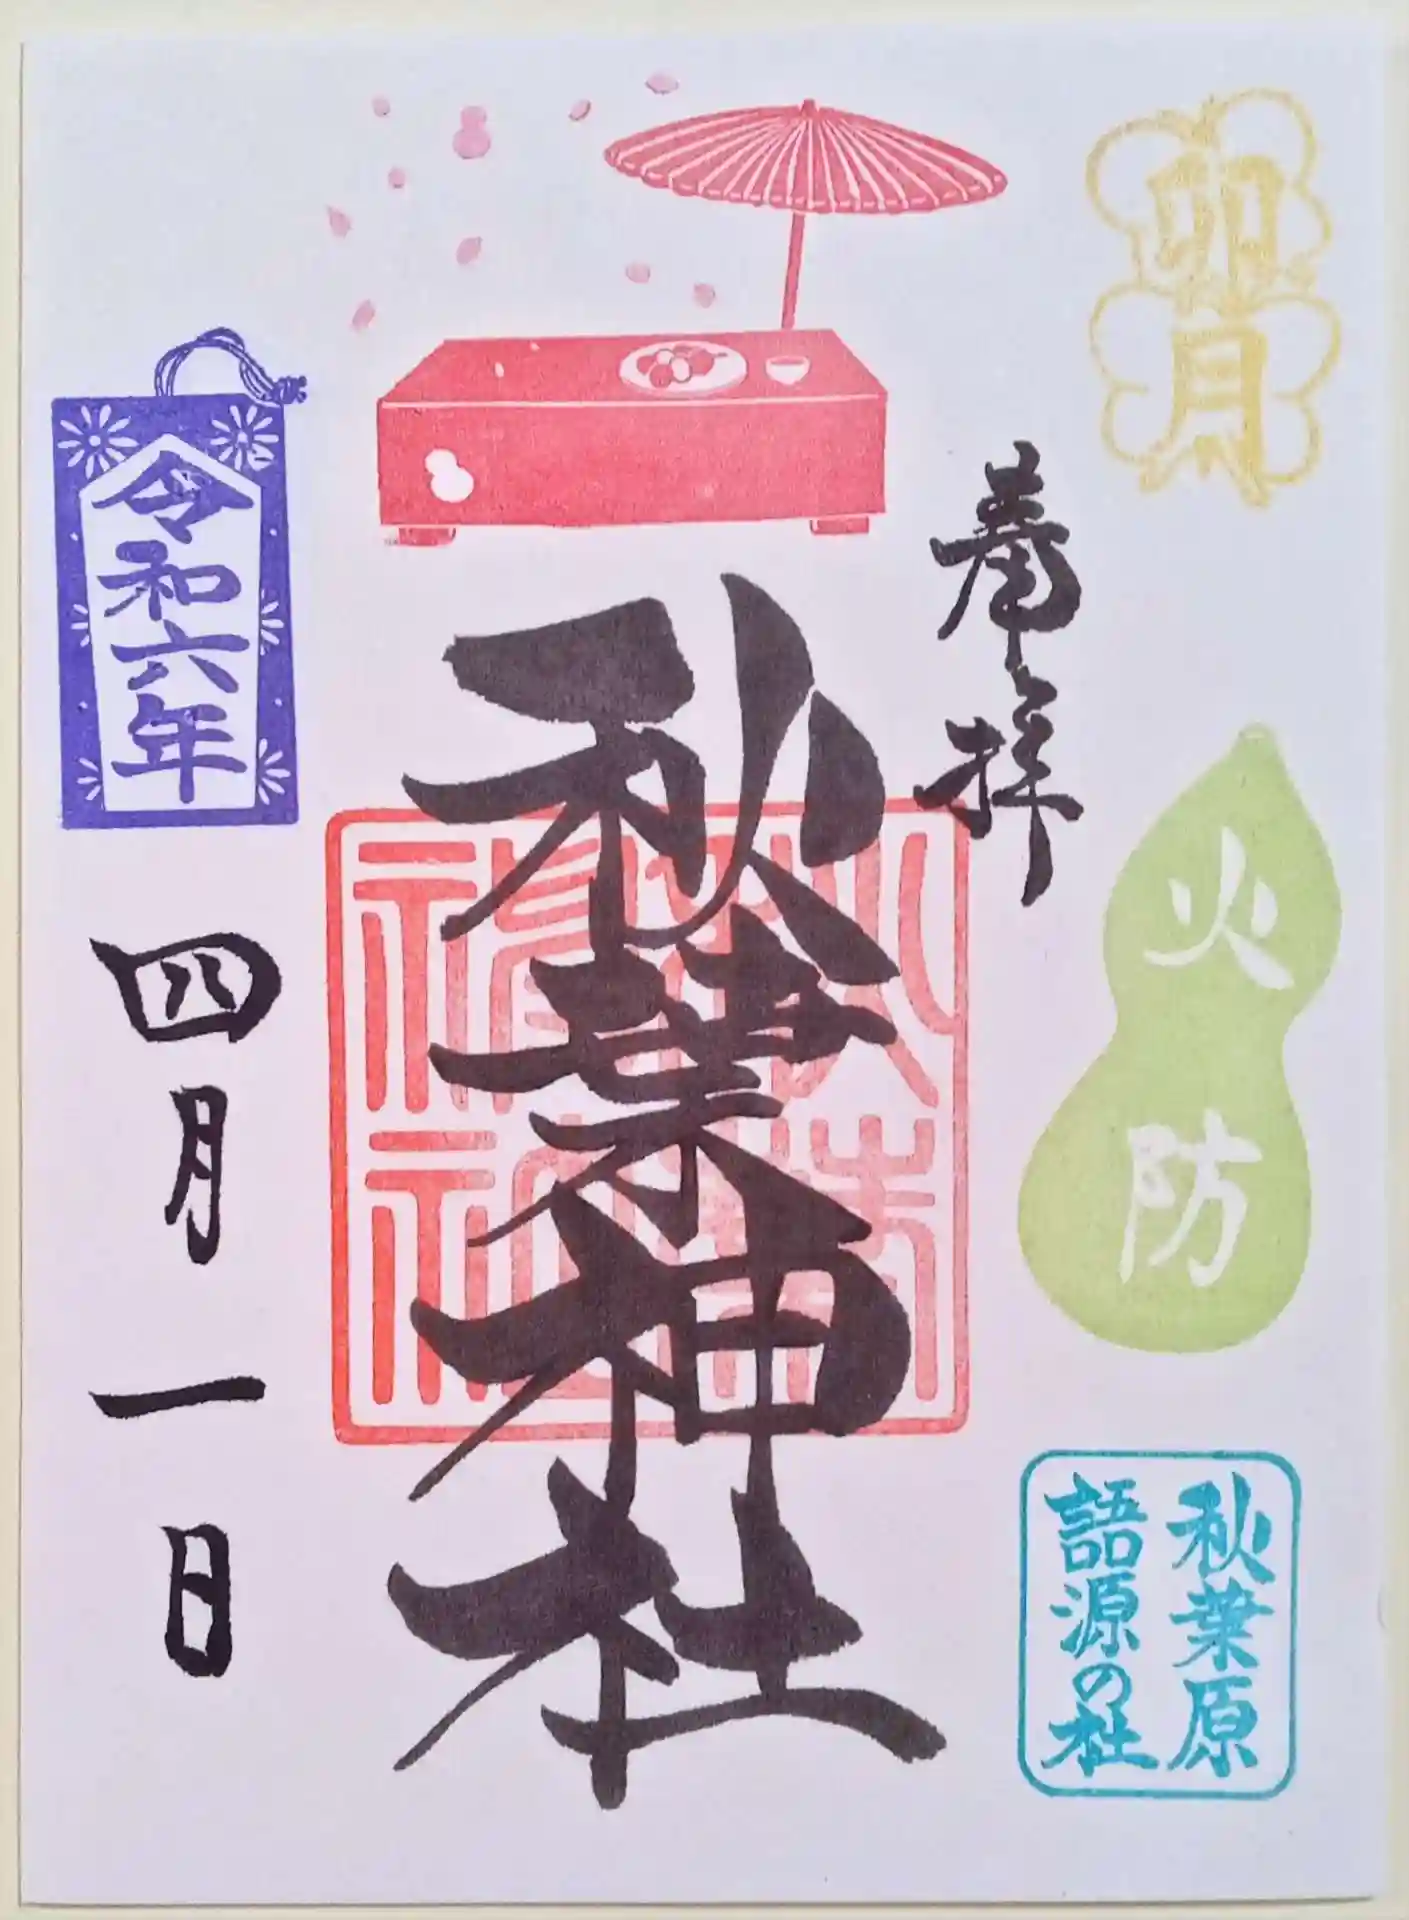 卯月
火防
秋葉原
語源の社
奉拝
秋葉神社
秋葉
神社
令和六年
四月一日